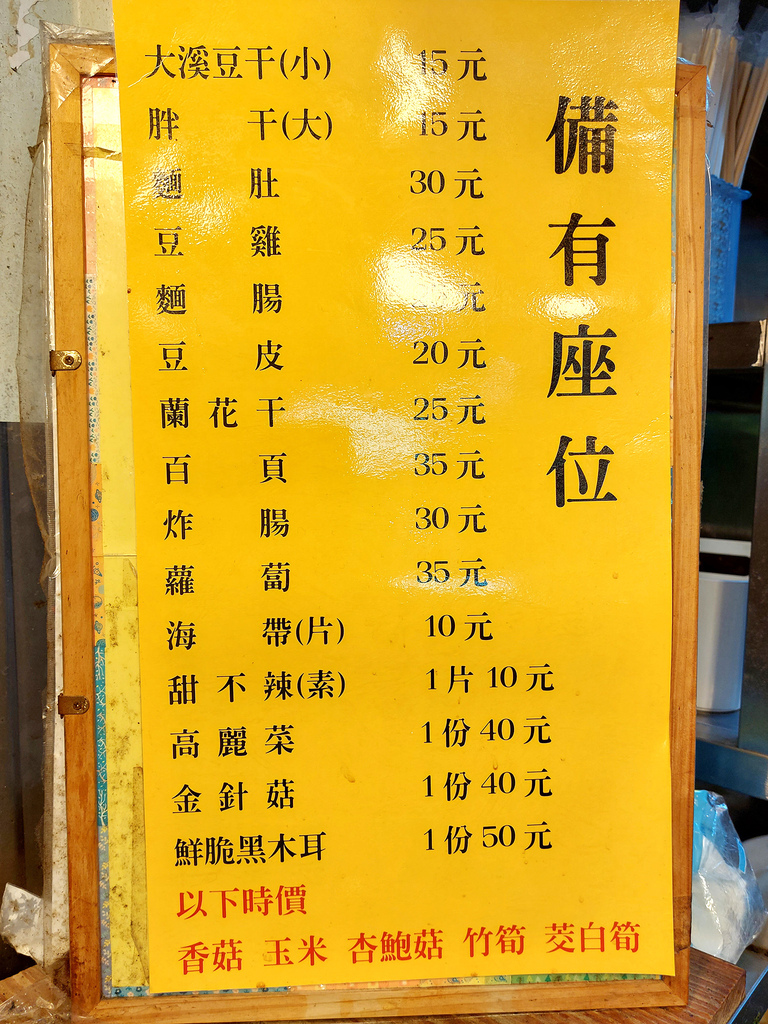 大溪豆干(小) 15元
胖干(大) 15元
麵肚 30元
豆雞 25元
麵腸 元
豆皮 20元
蘭花干 25元
百頁 35元
炸腸 30元
蘿蔔 35元
海帶(片) 10元
甜不辣(素) 1片10元
高麗菜 1份40元
金針菇 1份40元
鮮脆黑木耳 1份50元
以下時價
香菇 玉米 杏鮑菇 竹筍 茭白筍
備有座位